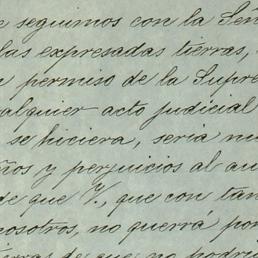 e seguimos con la Señ
las expresadas tierras,
n permiso de la Supre
alquier acto judicial
se hiciera, sería nu
ños y perjuicios al au
de que V., que con tan
nosotros, no querrá por
ierras de que no podrí